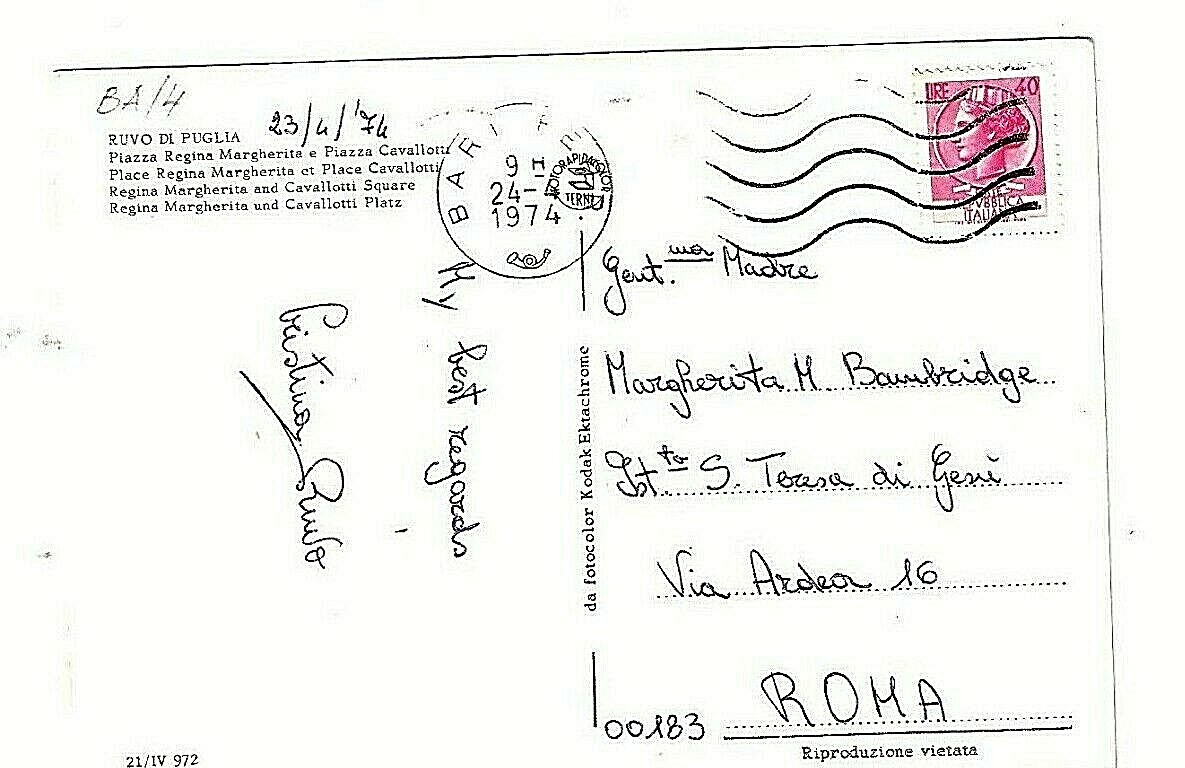 BA/4
23/4/'74
RUVO DI PUGLIA
Piazza Regina Margherita e Piazza Cavallotti
Place Regina Margherita et Place Cavallotti
Regina Margherita and Cavallotti Square
Regina Margherita und Cavallotti Platz
BARI
9 H
24-
1974
TERNI
LIRE 40
REPUBBLICA
ITALIANA
My best regards
Cristina
da fotocolor Kodak Ektachrome
Gent.ma Madre
Margherita M. Bambridge
Ist.to S. Teresa di Gesù
Via Ardea 16
00183 ROMA
Riproduzione vietata
21/IV 972